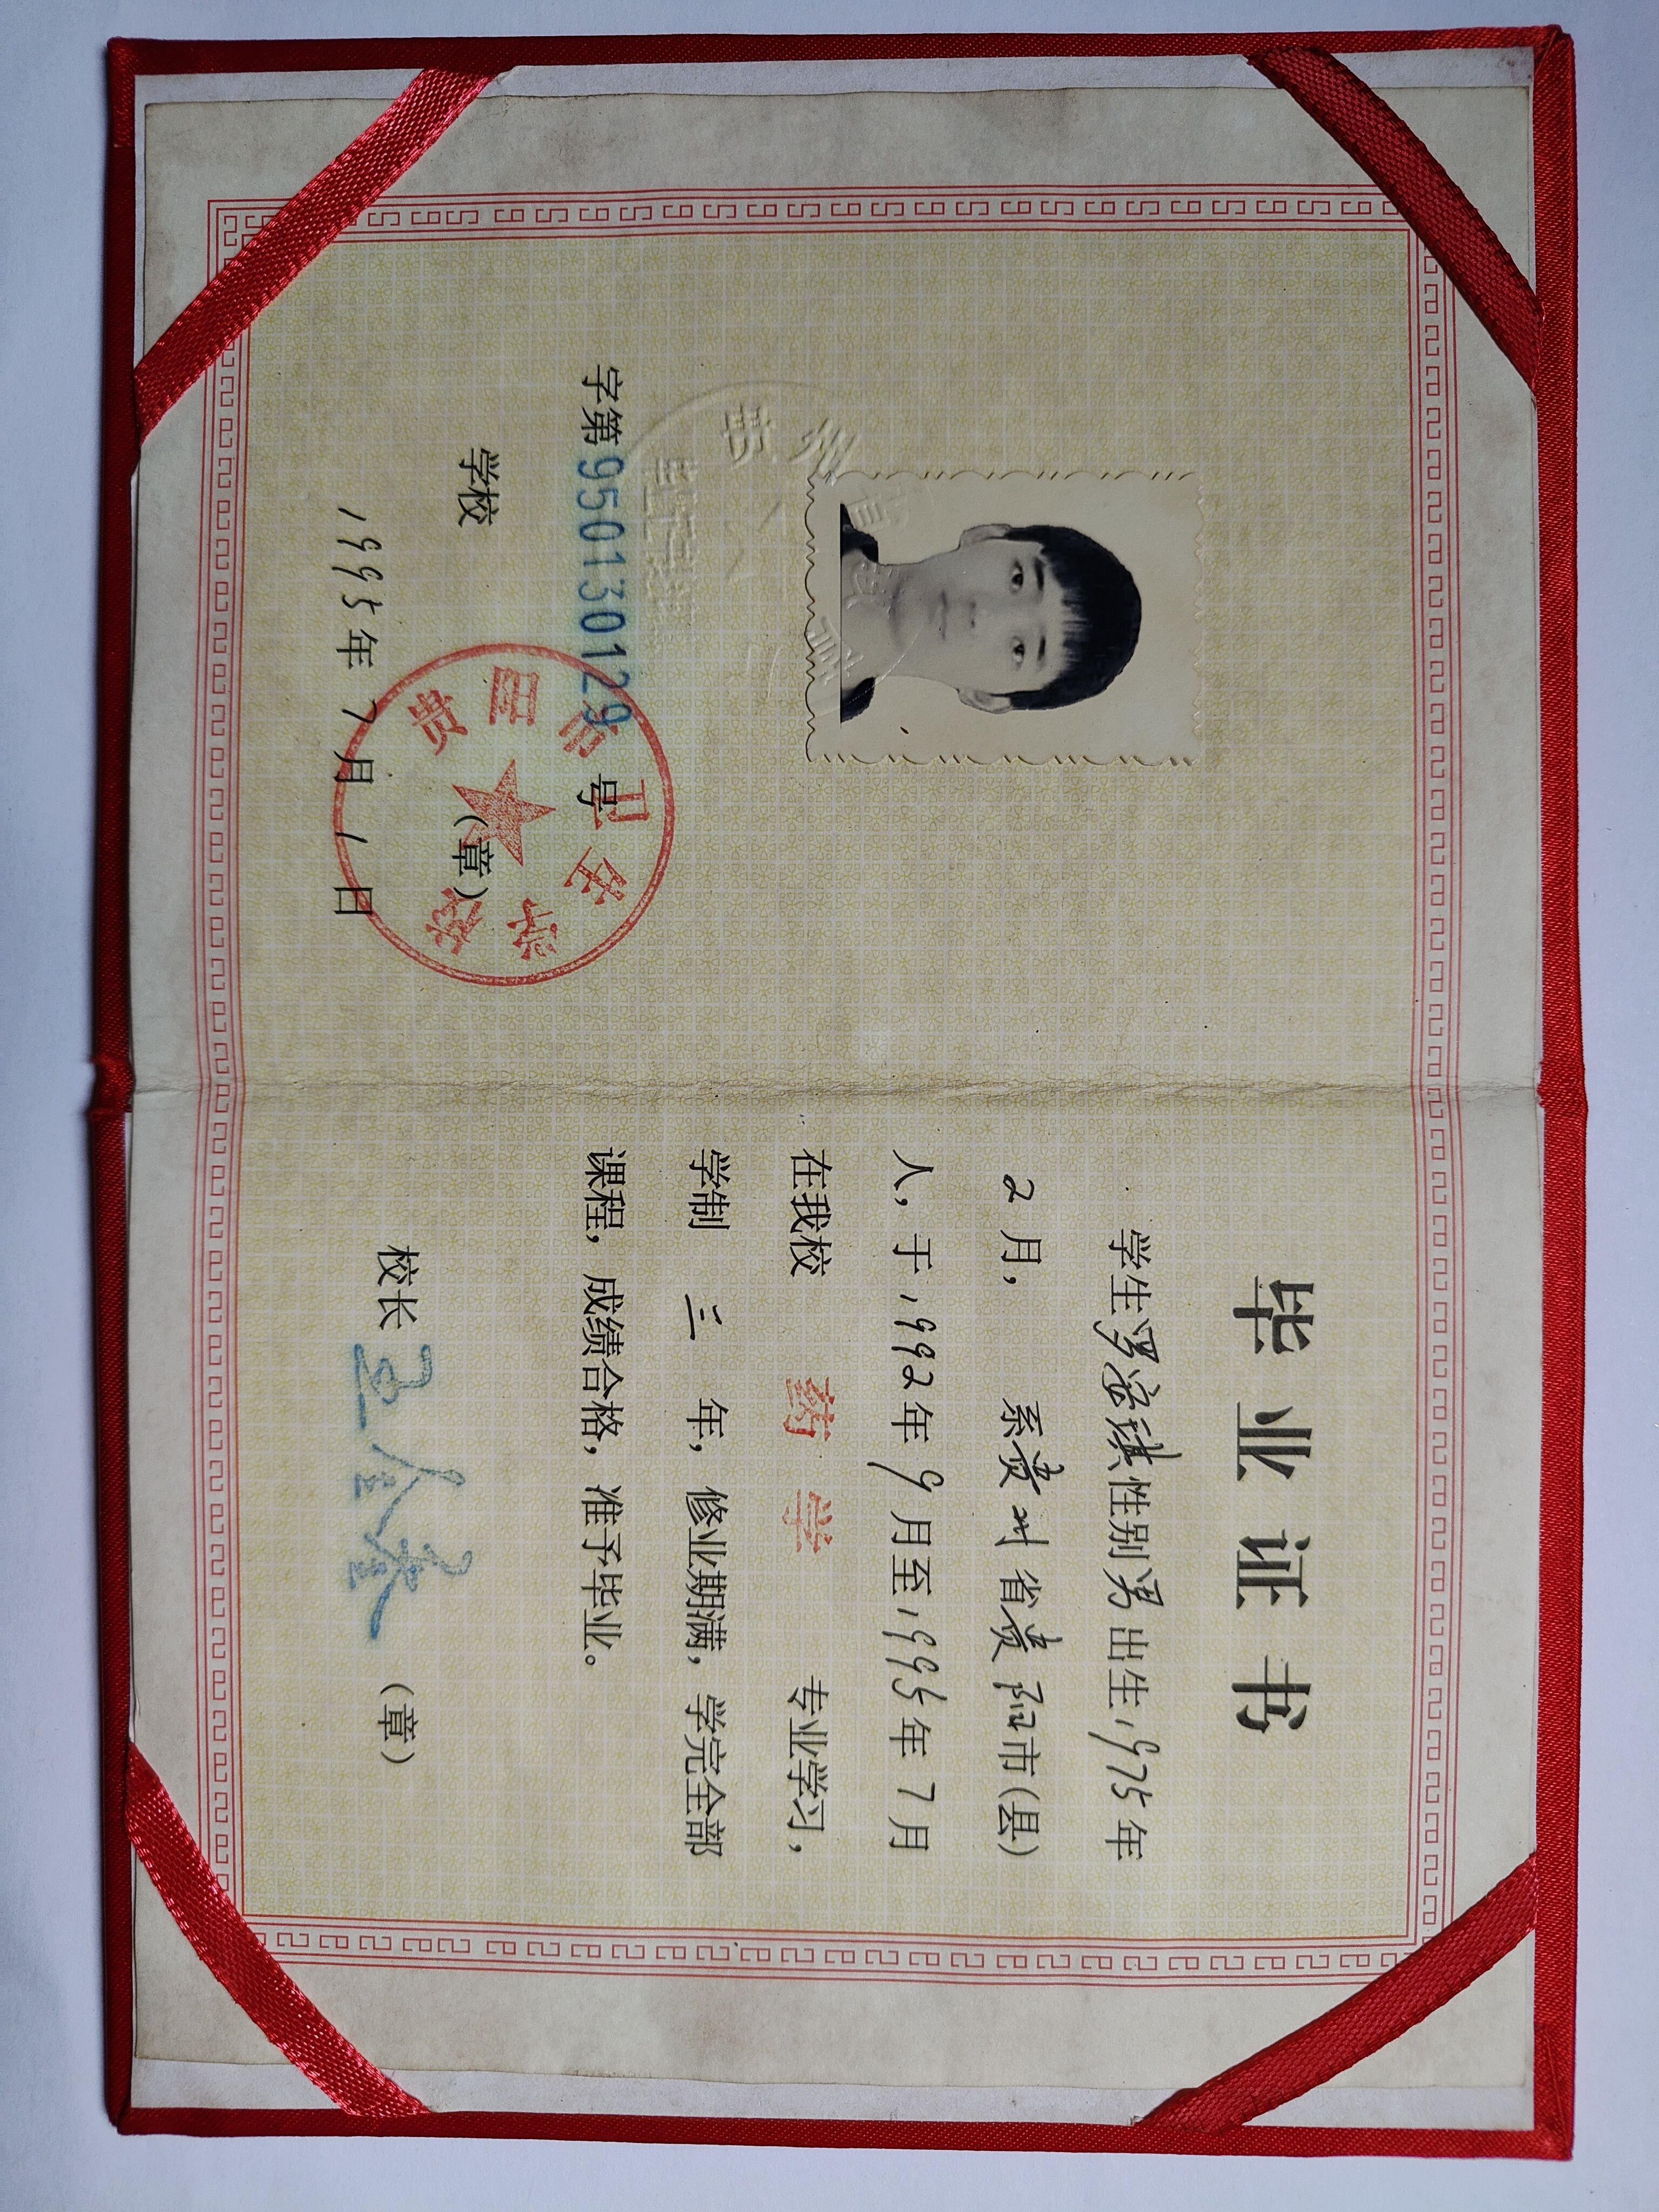 毕业证书
学生罗安琪性别男出生1975年
2月，系贵州省贵阳市(县)
人，于1992年9月至1995年7月
在我校 药学 专业学习，
学制 三 年，修业期满，学完全部
课程，成绩合格，准予毕业。
校长 (章)
字第950130129号
学校 (章)
1995年7月1日
贵阳市卫生学校